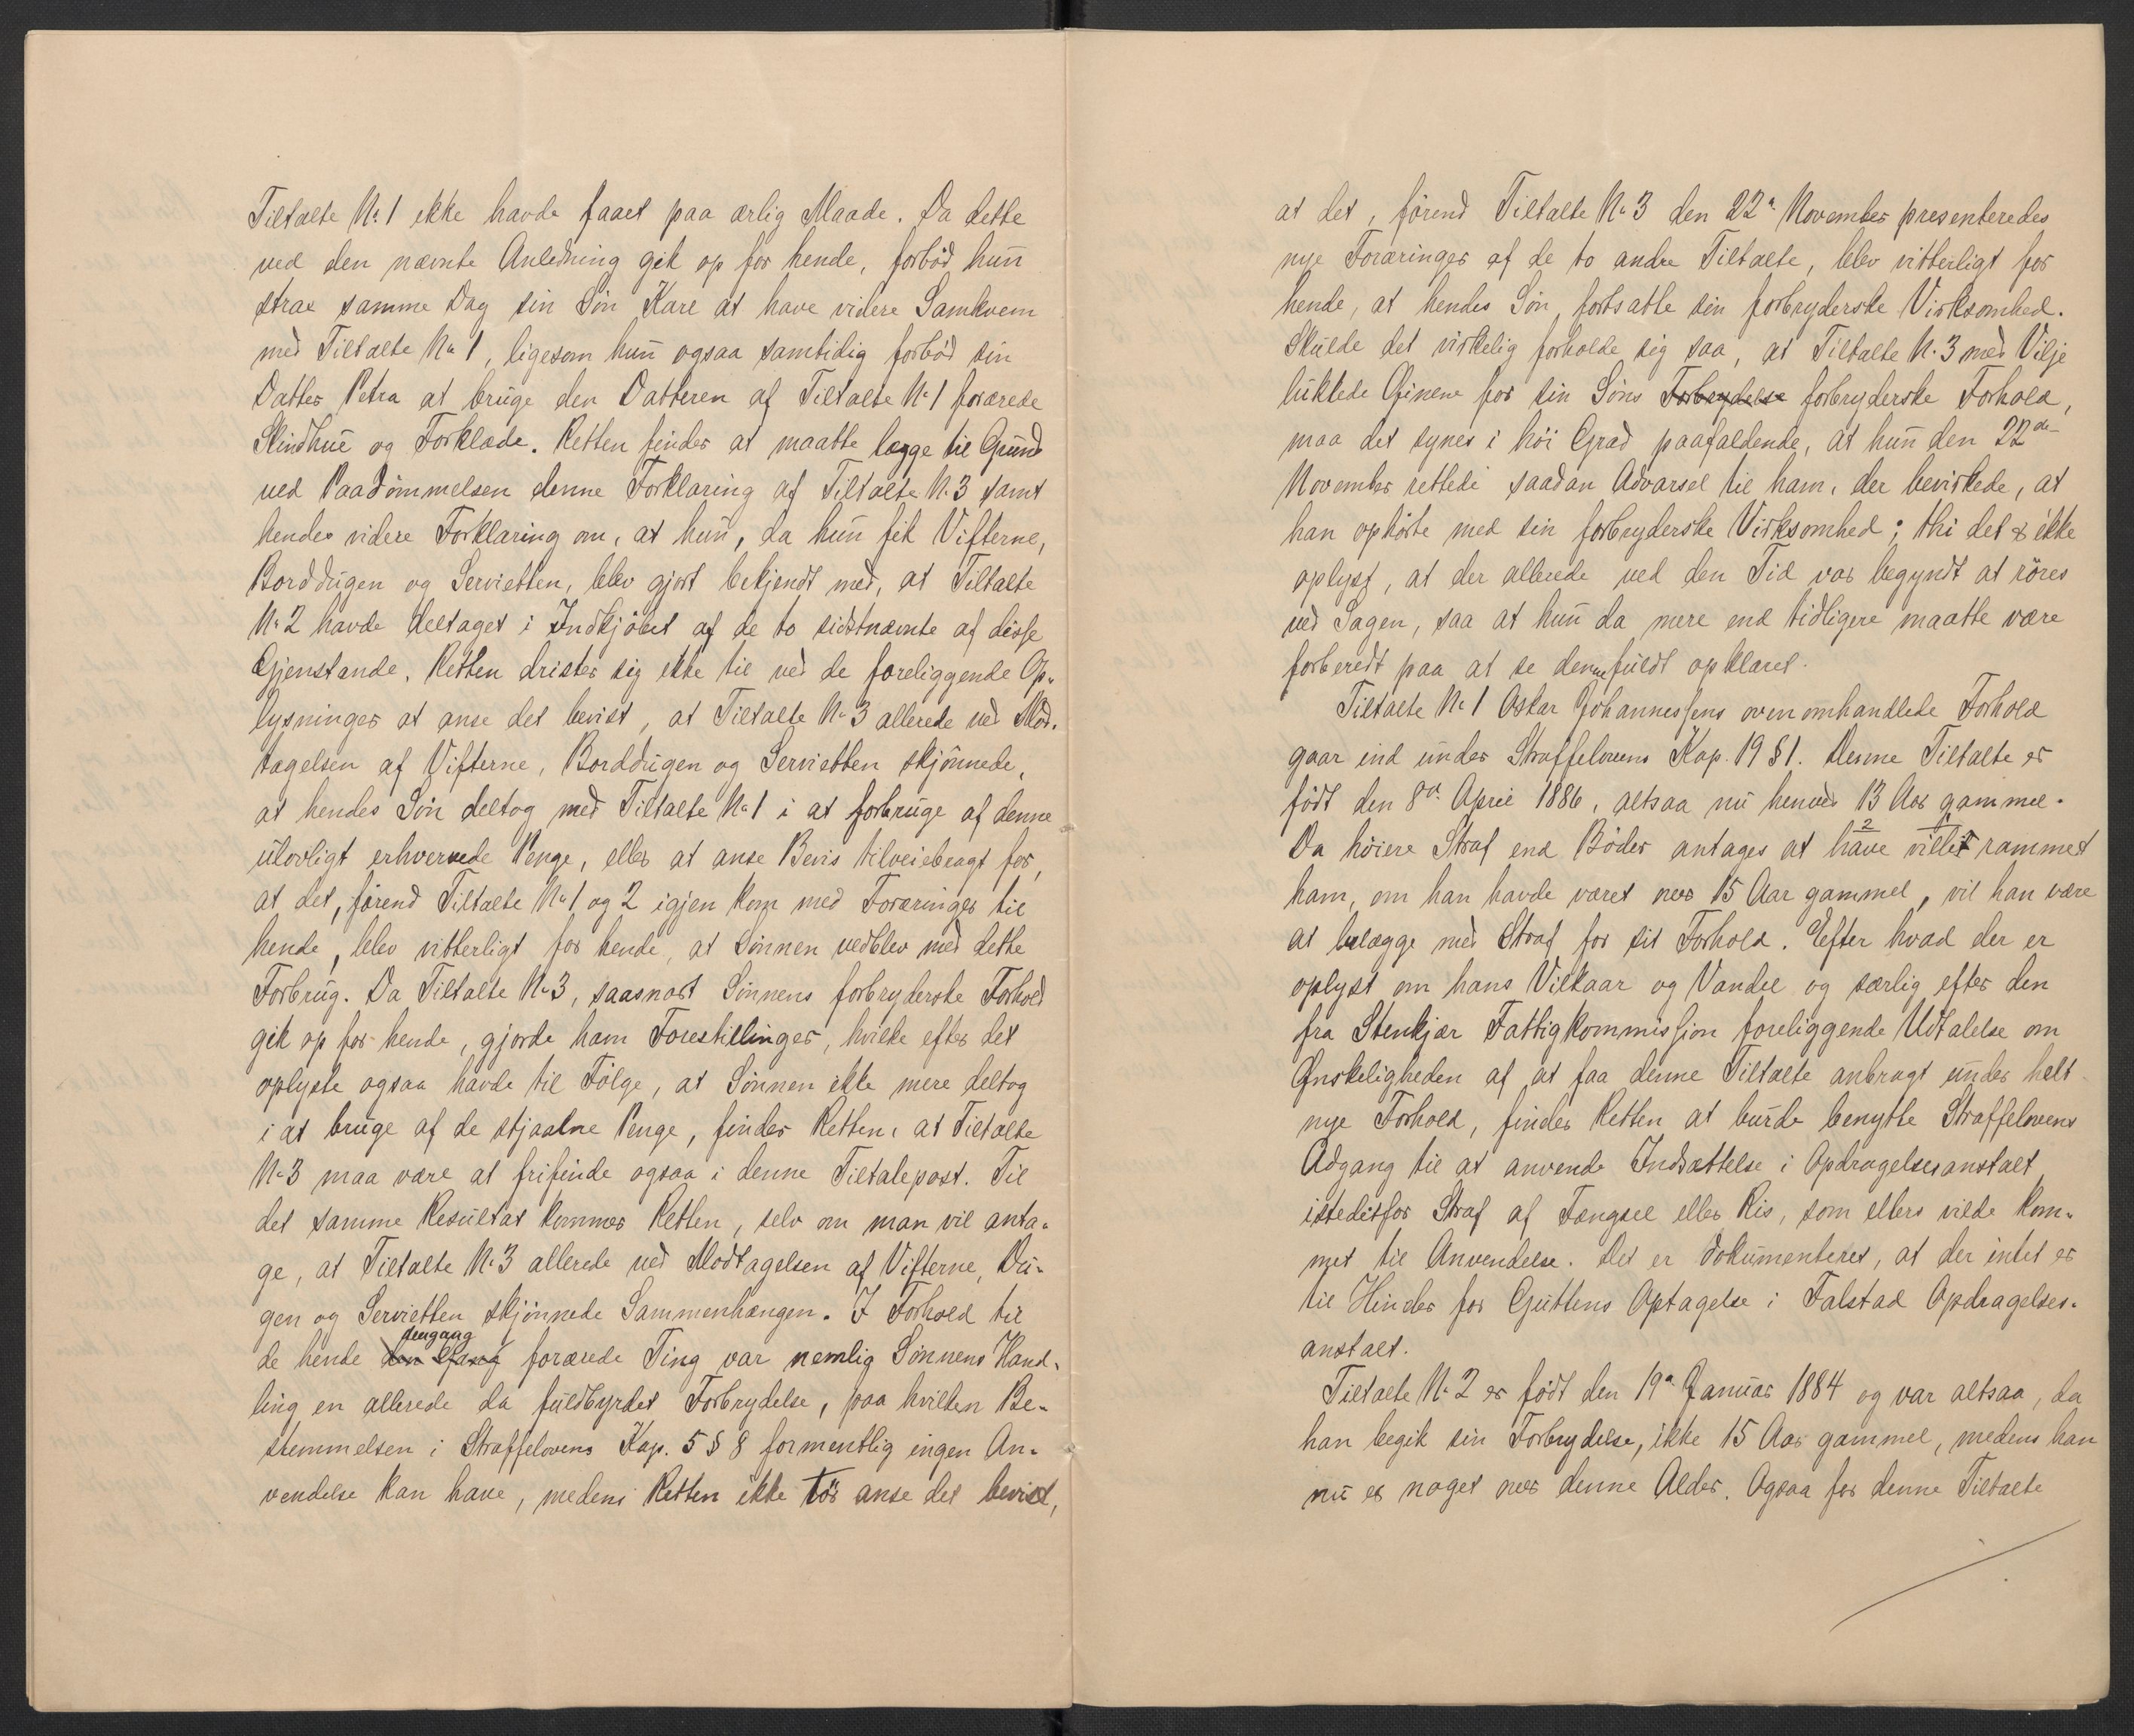 Tiltalte No 1 ikke havde faaet paa ærlig Maade. Da dette
ved den nævnte Anledning gik op for hende, forbød hun
strax samme Dag sin Søn Kare at have videre Samkvem
med Tiltalte No 1, ligesom hun ogsaa samtidig forbød sin
Datter Petra at bruge den Datteren af Tiltalte No 1 forærede
Skindhue og Forklæde. Retten finder at maatte lægge til Grund
ved Paadømmelsen denne Forklaring af Tiltalte No 3 samt
hendes videre Forklaring om, at hun, da hun fik Vifterne,
Borddugen og Servietten, blev gjort bekjendt med, at Tiltalte
No 2 havde deltaget i Indkjøbet af de to sidstnævnte af disse
Gjenstande. Retten drister sig ikke til ved de foreliggende Op-
lysninger at anse det bevist, at Tiltalte No 3 allerede ved Mod-
tagelsen af Vifterne, Borddugen og Servietten skjønnede,
at hendes Søn deltog med Tiltalte No 1 i at forbruge af denne
ulovligt erhvervede Penge, eller at anse Bevis tilveiebragt for,
at det, førend Tiltalte No 1 og 2 igjen kom med Foræringer til
hende, blev vitterligt for hende, at Sønnen vedblev med dette
Forbrug. Da Tiltalte No 3, saasnart Sønnens forbryderske Forhold
gik op for hende, gjorde ham Forestillinger, hvilke efter det
oplyste ogsaa havde til Følge, at Sønnen ikke mere deltog
i at bruge af de stjaalne Penge, finder Retten, at Tiltalte
No 3 maa være at frifinde ogsaa i denne Tiltalepost. Til
det samme Resultat kommer Retten, selv om man vil anta-
ge, at Tiltalte No 3 allerede ved Modtagelsen af Vifterne, Du-
gen og Servietten skjønnede Sammenhængen. I Forhold til
de hende den Gang dengang forærede Ting var nemlig Sønnens Hand-
ling en allerede da fuldbyrdet Forbrydelse, paa hvilken Be-
stemmelsen i Straffelovens Kap. 5 § 8 formentlig ingen An-
vendelse kan have, medens Retten ikke tør anse det bevist,
at det, førend Tiltalte No 3 den 22de November presenteredes
nye Foræringer af de to andre Tiltalte, blev vitterligt for
hende, at hendes Søn fortsatte sin forbryderske Virksomhed.
Skulde det virkelig forholde sig saa, at Tiltalte No 3 med Vilje
lukkede Øinene for sin Søns Forbrydelse forbryderske Forhold,
maa det synes i høi Grad paafaldende, at hun den 22de
November rettede saadan Advarsel til ham, der bevirkede, at
han ophørte med sin forbryderske Virksomhed; thi det er ikke
oplyst, at der allerede ved den Tid var begyndt at røres
ved Sagen, saa at hun da mere end tidligere maatte være
forberedt paa at se denne fuldt opklaret.
Tiltalte No 1 Oskar Johannessens ovenomhandlede Forhold
gaar ind under Straffelovens Kap. 19 § 1. Denne Tiltalte er
født den 8de April 1886, altsaa nu henved 13 Aar gammel.
Da høiere Straf end Bøder antages at have villet rammet
ham, om han havde været over 15 Aar gammel, vil han være
at belægge med Straf for sit Forhold. Efter hvad der er
oplyst om hans Vilkaar og Vandel og særlig efter den
fra Stenkjær Fattigkommission foreliggende Udtalelse om
Ønskeligheden af at faa denne Tiltalte anbragt under helt
nye Forhold, finder Retten at burde benytte Straffelovens
Adgang til at anvende Indsættelse i Opdragelsesanstalt
istedetfor Straf af Fængsel eller Ris, som ellers vilde kom-
met til Anvendelse. Det er dokumenteret, at der intet er
til Hinder for Guttens Optagelse i Falstad Opdragelses-
anstalt.
Tiltalte No 2 er født den 19de Januar 1884 og var altsaa, da
han begik sin Forbrydelse, ikke 15 Aar gammel, medens han
nu er noget over denne Alder. Ogsaa for denne Tiltalte